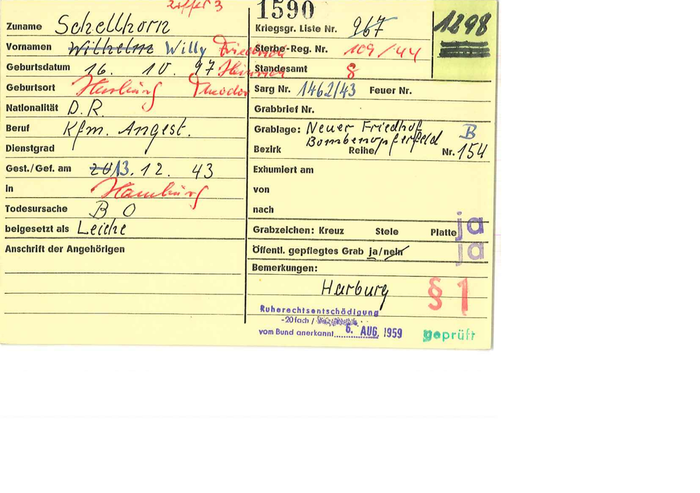 Ziffer 3
1590
1298
Zuname Schellhorn
Kriegsgr. Liste Nr. 967
Vornamen Wilhelm Willy Friedrich
Sterbe-Reg. Nr. 109/44
Geburtsdatum 16. 10. 97 Heinrich
Standesamt 8
Geburtsort Harburg Theodor
Sarg Nr. 1462/43 Feuer Nr.
Nationalität D.R.
Grabbrief Nr.
Beruf Kfm. Angest.
Grablage: Neuer Friedhof B
Bombenopferfeld
Dienstgrad
Bezirk Reihe/ Nr. 154
Gest./Gef. am 13. 12. 43
Exhumiert am
in Hamburg
von
Todesursache B O
nach
beigesetzt als Leiche
Grabzeichen: Kreuz Stele Platte ja
Anschrift der Angehörigen
Öffentl. gepflegtes Grab ja/nein ja
Bemerkungen:
Harburg
§ 1
Ruherechtsentschädigung
-20fach /
vom Bund anerkannt 6. AUG. 1959
geprüft